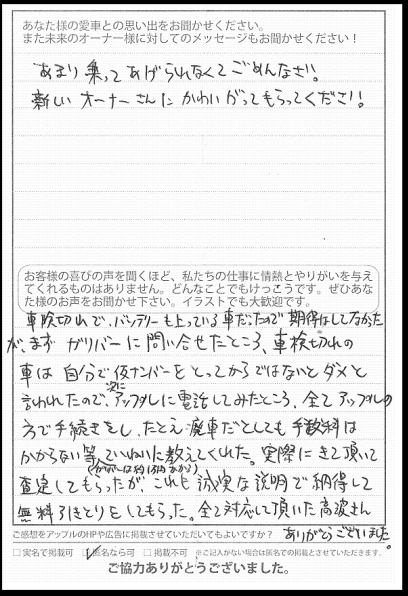 あなた様の愛車との思い出をお聞かせください。
また未来のオーナー様に対してのメッセージもお聞かせください！
あまり乗ってあげられなくてごめんなさい。
新しいオーナーさんにかわいがってもらってください！
お客様の喜びの声を聞くほど、私たちの仕事に情熱とやりがいを与え
てくれるものはありません。どんなことでもけっこうです。ぜひあな
た様のお声をお聞かせ下さい。イラストでも大歓迎です。
車検切れで、バッテリーも上っている車だったので期待はしてなかった
が、まず ガリバーに問い合せたところ、車検切れの
車は 自分で仮ナンバーをとってからではないとダメと
言われたので、次にアップルに電話してみたところ、全てアップルの
方で手続きをし、たとえ廃車だとしても手数料は
かからない等、ていねいに教えてくれた。実際にきて頂いて
(ガリバーは約1万円かかる)
査定してもらったが、これも誠実な説明で納得して
無料引きとりをしてもらった。全て対応して頂いた高波さん
ありがとうございました。
ご感想をアップルのHPや広告に掲載させていただいてもよいですか？
□ 実名で掲載可 ☑ 匿名なら可 □ 掲載不可 ※ご記入がない場合は匿名での掲載とさせていただきます。
ご協力ありがとうございました。